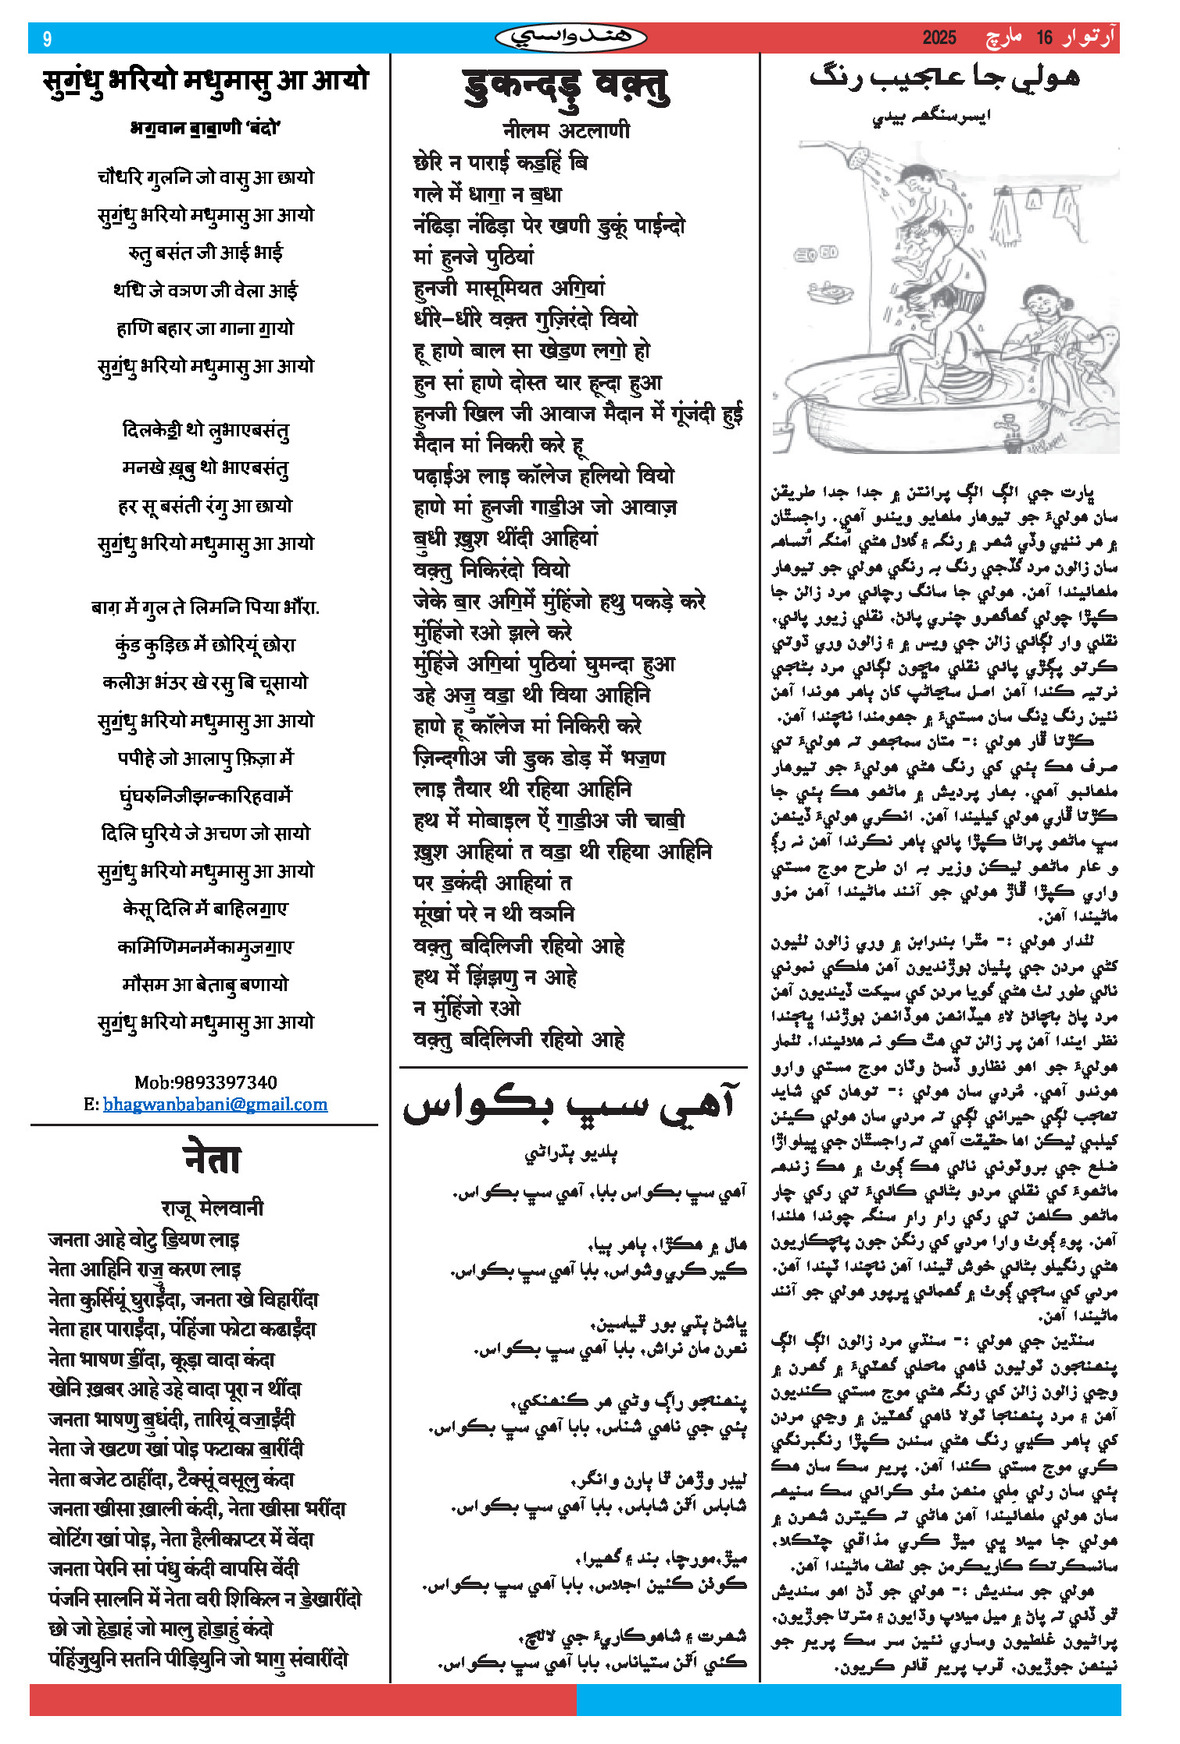 9
هندواسي
آرتوار 16 مارچ 2025
सुग॒ंधु भरियो मधुमासु आ आयो
भग॒वान बा॒बा॒णी ‘बंदो’
चौधरि गुलनि जो वासु आ छायो
सुग॒ंधु भरियो मधुमासु आ आयो
रुतु बसंत जी आई भाई
थधि जे वञण जी वेला आई
हाणि बहार जा गाना गा॒यो
सुग॒ंधु भरियो मधुमासु आ आयो
दिलकेडी॒ थो लुभाएबसंतु
मनखे ख़ूबु थो भाएबसंतु
हर सू बसंती रंगु आ छायो
सुग॒ंधु भरियो मधुमासु आ आयो
बाग़ में गुल ते लिमनि पिया भौंरा.
कुंड कुड़िछ में छोरियूं छोरा
कलीअ भंउर खे रसु बि चूसायो
सुग॒ंधु भरियो मधुमासु आ आयो
पपीहे जो आलापु फ़िज़ा में
घुंघरुनिजीझन्कारिहवामें
दिलि घुरिये जे अचण जो सायो
सुग॒ंधु भरियो मधुमासु आ आयो
केसू दिलि में बाहिलगा॒ए
कामिणिमनमेंकामुजगा॒ए
मौसम आ बेताबु बणायो
सुग॒ंधु भरियो मधुमासु आ आयो
Mob:9893397340
E: bhagwanbabani@gmail.com
नेता
राजू मेलवानी
जनता आहे वोटु डि॒यण लाइ
नेता आहिनि राजु॒ करण लाइ
नेता कुर्सियूं घुराईंदा, जनता खे विहारींदा
नेता हार पाराईंदा, पंहिंजा फोटा कढाईंदा
नेता भाषण डीं॒दा, कूड़ा वादा कंदा
खेनि ख़बर आहे उहे वादा पूरा न थींदा
जनता भाषणु बु॒धंदी, तारियूं वजा॒ईंदी
नेता जे खटण खां पोइ फटाका बा॒रींदी
नेता बजेट ठाहींदा, टैक्सूं वसूलु कंदा
जनता खीसा ख़ाली कंदी, नेता खीसा भरींदा
वोटिंग खां पोइ, नेता हैलीकाप्टर में वेंदा
जनता पेरनि सां पंधु कंदी वापसि वेंदी
पंजनि सालनि में नेता वरी शिकिल न डे॒खारींदो
छो जो हेडा॒हं जो मालु होडा॒हुं कंदो
पंहिंजुयुनि सतनि पीड़ियुनि जो भागु॒ संवारींदो
डुकन्दड़ु वक़्तु
नीलम अटलाणी
छेरि न पाराई कड॒हिं बि
गले में धागा॒ न ब॒धा
नंढिड़ा नंढिड़ा पेर खणी डुकूं पाईन्दो
मां हुनजे पुठियां
हुनजी मासूमियत अगि॒यां
धीरे–धीरे वक़्त गुज़िरंदो वियो
हू हाणे बाल सा खेड॒ण लगो॒ हो
हुन सां हाणे दोस्त यार हून्दा हुआ
हुनजी खिल जी आवाज मैदान में गूंजंदी हुई
मैदान मां निकरी करे हू
पढ़ाईअ लाइ कॉलेज हलियो वियो
हाणे मां हुनजी गाडी॒अ जो आवाज़
बु॒धी ख़ुश थींदी आहियां
वक़्तु निकिरंदो वियो
जेके बा॒र अगि॒में मुंहिंजो हथु पकड़े करे
मुंहिंजो रओ झले करे
मुंहिंजे अगि॒यां पुठियां घुमन्दा हुआ
उहे अजु॒ वडा॒ थी विया आहिनि
हाणे हू कॉलेज मां निकिरी करे
ज़िन्दगीअ जी डुक डोड़ में भज॒ण
लाइ तैयार थी रहिया आहिनि
हथ में मोबाइल ऐं गा॒डी॒अ जी चाबी॒
ख़ुश आहियां त वडा॒ थी रहिया आहिनि
पर ड॒कंदी आहियां त
मूंखां परे न थी वञनि
वक़्तु बदिलिजी रहियो आहे
हथ में झिंझणु न आहे
न मुंहिंजो रओ
वक़्तु बदिलिजी रहियो आहे
آهي سڀ بڪواس
بلديو پڌراڻي
آهي سڀ بڪواس بابا، آهي سڀ بڪواس.
هال ۾ هڪڙا، ٻاهر ٻيا،
ڪير ڪري وشواس، بابا آهي سڀ بڪواس.
ڀاشڻ ٻڌي بور ٿياسين،
نعرن مان نراش، بابا آهي سڀ بڪواس.
پنهنجو راڳ وڻي هر ڪنهنکي،
ٻئي جي ناهي شناس، بابا آهي سڀ بڪواس.
ليڊر وڙهن ٿا ٻارن وانگر،
شاباس اَٿن شاباس، بابا آهي سڀ بڪواس.
ميڙ،مورچا، بند ۽ گهيرا،
ڪوڏن ڪئين اجلاس، بابا آهي سڀ بڪواس.
شهرت ۽ شاهوڪاريءَ جي لالچ،
ڪئي اَٿن ستياناس، بابا آهي سڀ بڪواس.
هولي جا عجيب رنگ
ايسرسنگهه بيدي
ڀارت جي الڳ الڳ پرانتن ۾ جدا جدا طريقن
سان هوليءَ جو تيوهار ملهايو ويندو آهي. راجسٿان
۾ هر ننڍي وڏي شهر ۾ رنگ ۽ گلال هڻي اُمنگ اُتساهه
سان زالون مرد گڏجي رنگ به رنگي هولي جو تيوهار
ملهائيندا آهن. هولي جا سانگ رچائي مرد زالن جا
ڪپڙا چولي گهاگهرو چنري پائڻ، نقلي زيور پائي،
نقلي وار لڳائي زالن جي ويس ۾ ۽ زالون وري ڌوتي
ڪرتو پڳڙي پائي نقلي مڇون لڳائي مرد بڻجي
نرتيه ڪندا آهن اصل سڃاڻپ کان ٻاهر هوندا آهن
نئين رنگ ڍنگ سان مستيءَ ۾ جهومندا نچندا آهن.
ڪڙتا ڦار هولي :- متان سمجهو ته هوليءَ تي
صرف هڪ ٻئي کي رنگ هڻي هوليءَ جو تيوهار
ملهائبو آهي. بهار پرديش ۾ ماڻهو هڪ ٻئي جا
ڪڙتا ڦاڙي هولي کيليندا آهن. انڪري هوليءَ ڏينهن
سڀ ماڻهو پراڻا ڪپڙا پائي ٻاهر نڪرندا آهن نه رڳو
و عام ماڻهو ليڪن وزير به ان طرح موج مستي
واري ڪپڙا ڦاڙ هولي جو آنند ماڻيندا آهن مزو
ماڻيندا آهن.
لٺدار هولي :- مٿرا بندرابن ۾ وري زالون لٺيون
کڻي مردن جي پٺيان ڊوڙنديون آهن هلڪي نموني
نالي طور لٺ هڻي گويا مردن کي سيکت ڏينديون آهن
مرد پاڻ بچائڻ لاءِ هيڏانهن هوڏانهن ڊوڙندا ڀڄندا
نظر ايندا آهن پر زالن تي هٿ ڪو نه هلائيندا. لٺمار
هوليءَ جو اهو نظارو ڏسڻ وٽان موج مستي وارو
هوندو آهي. مُردي سان هولي :- توهان کي شايد
تعجب لڳي حيراني لڳي ته مردي سان هولي ڪيئن
کيلبي ليڪن اها حقيقت آهي ته راجسٿان جي ڀيلواڙا
ضلع جي بروٽوني نالي هڪ ڳوٺ ۾ هڪ زندهه
ماڻهوءَ کي نقلي مردو بڻائي ڪاٺيءَ تي رکي چار
ماڻهو ڪلهن تي رکي رام رام سنگ چوندا هلندا
آهن. پوءِ ڳوٺ وارا مردي کي رنگن جون پچڪاريون
هڻي رنگيلو بڻائي خوش ٿيندا آهن نچندا ٽپندا آهن.
مردي کي سڄي ڳوٺ ۾ گهمائي ڀرپور هولي جو آنند
ماڻيندا آهن.
سنڌين جي هولي :- سنڌي مرد زالون الڳ الڳ
پنهنجون ٽوليون ٺاهي محلي گهٽيءَ ۾ گهرن ۾
وڃي زالون زالن کي رنگ هڻي موج مستي ڪنديون
آهن ۽ مرد پنهنجا ٽولا ٺاهي گهٽين ۾ وڃي مردن
کي ٻاهر ڪڍي رنگ هڻي سندن ڪپڙا رنگبرنگي
ڪري موج مستي ڪندا آهن. پريم سڪ سان هڪ
ٻئي سان رلي مِلي منهن مٺو ڪرائي سڪ سنيهه
سان هولي ملهائيندا آهن هاڻي ته ڪيترن شهرن ۾
هولي جا ميلا ڀي ميڙ ڪري مذاقي چٽڪلا،
سانسڪرتڪ ڪاريڪرمن جو لطف ماڻيندا آهن.
هولي جو سنديش :- هولي جو ڏڻ اهو سنديش
ٿو ڏئي ته پاڻ ۾ ميل ميلاپ وڌايون ۽ مترتا جوڙيون،
پراڻيون غلطيون وساري نئين سر سڪ پريم جو
نينهن جوڙيون، قرب پريم قائم ڪريون.